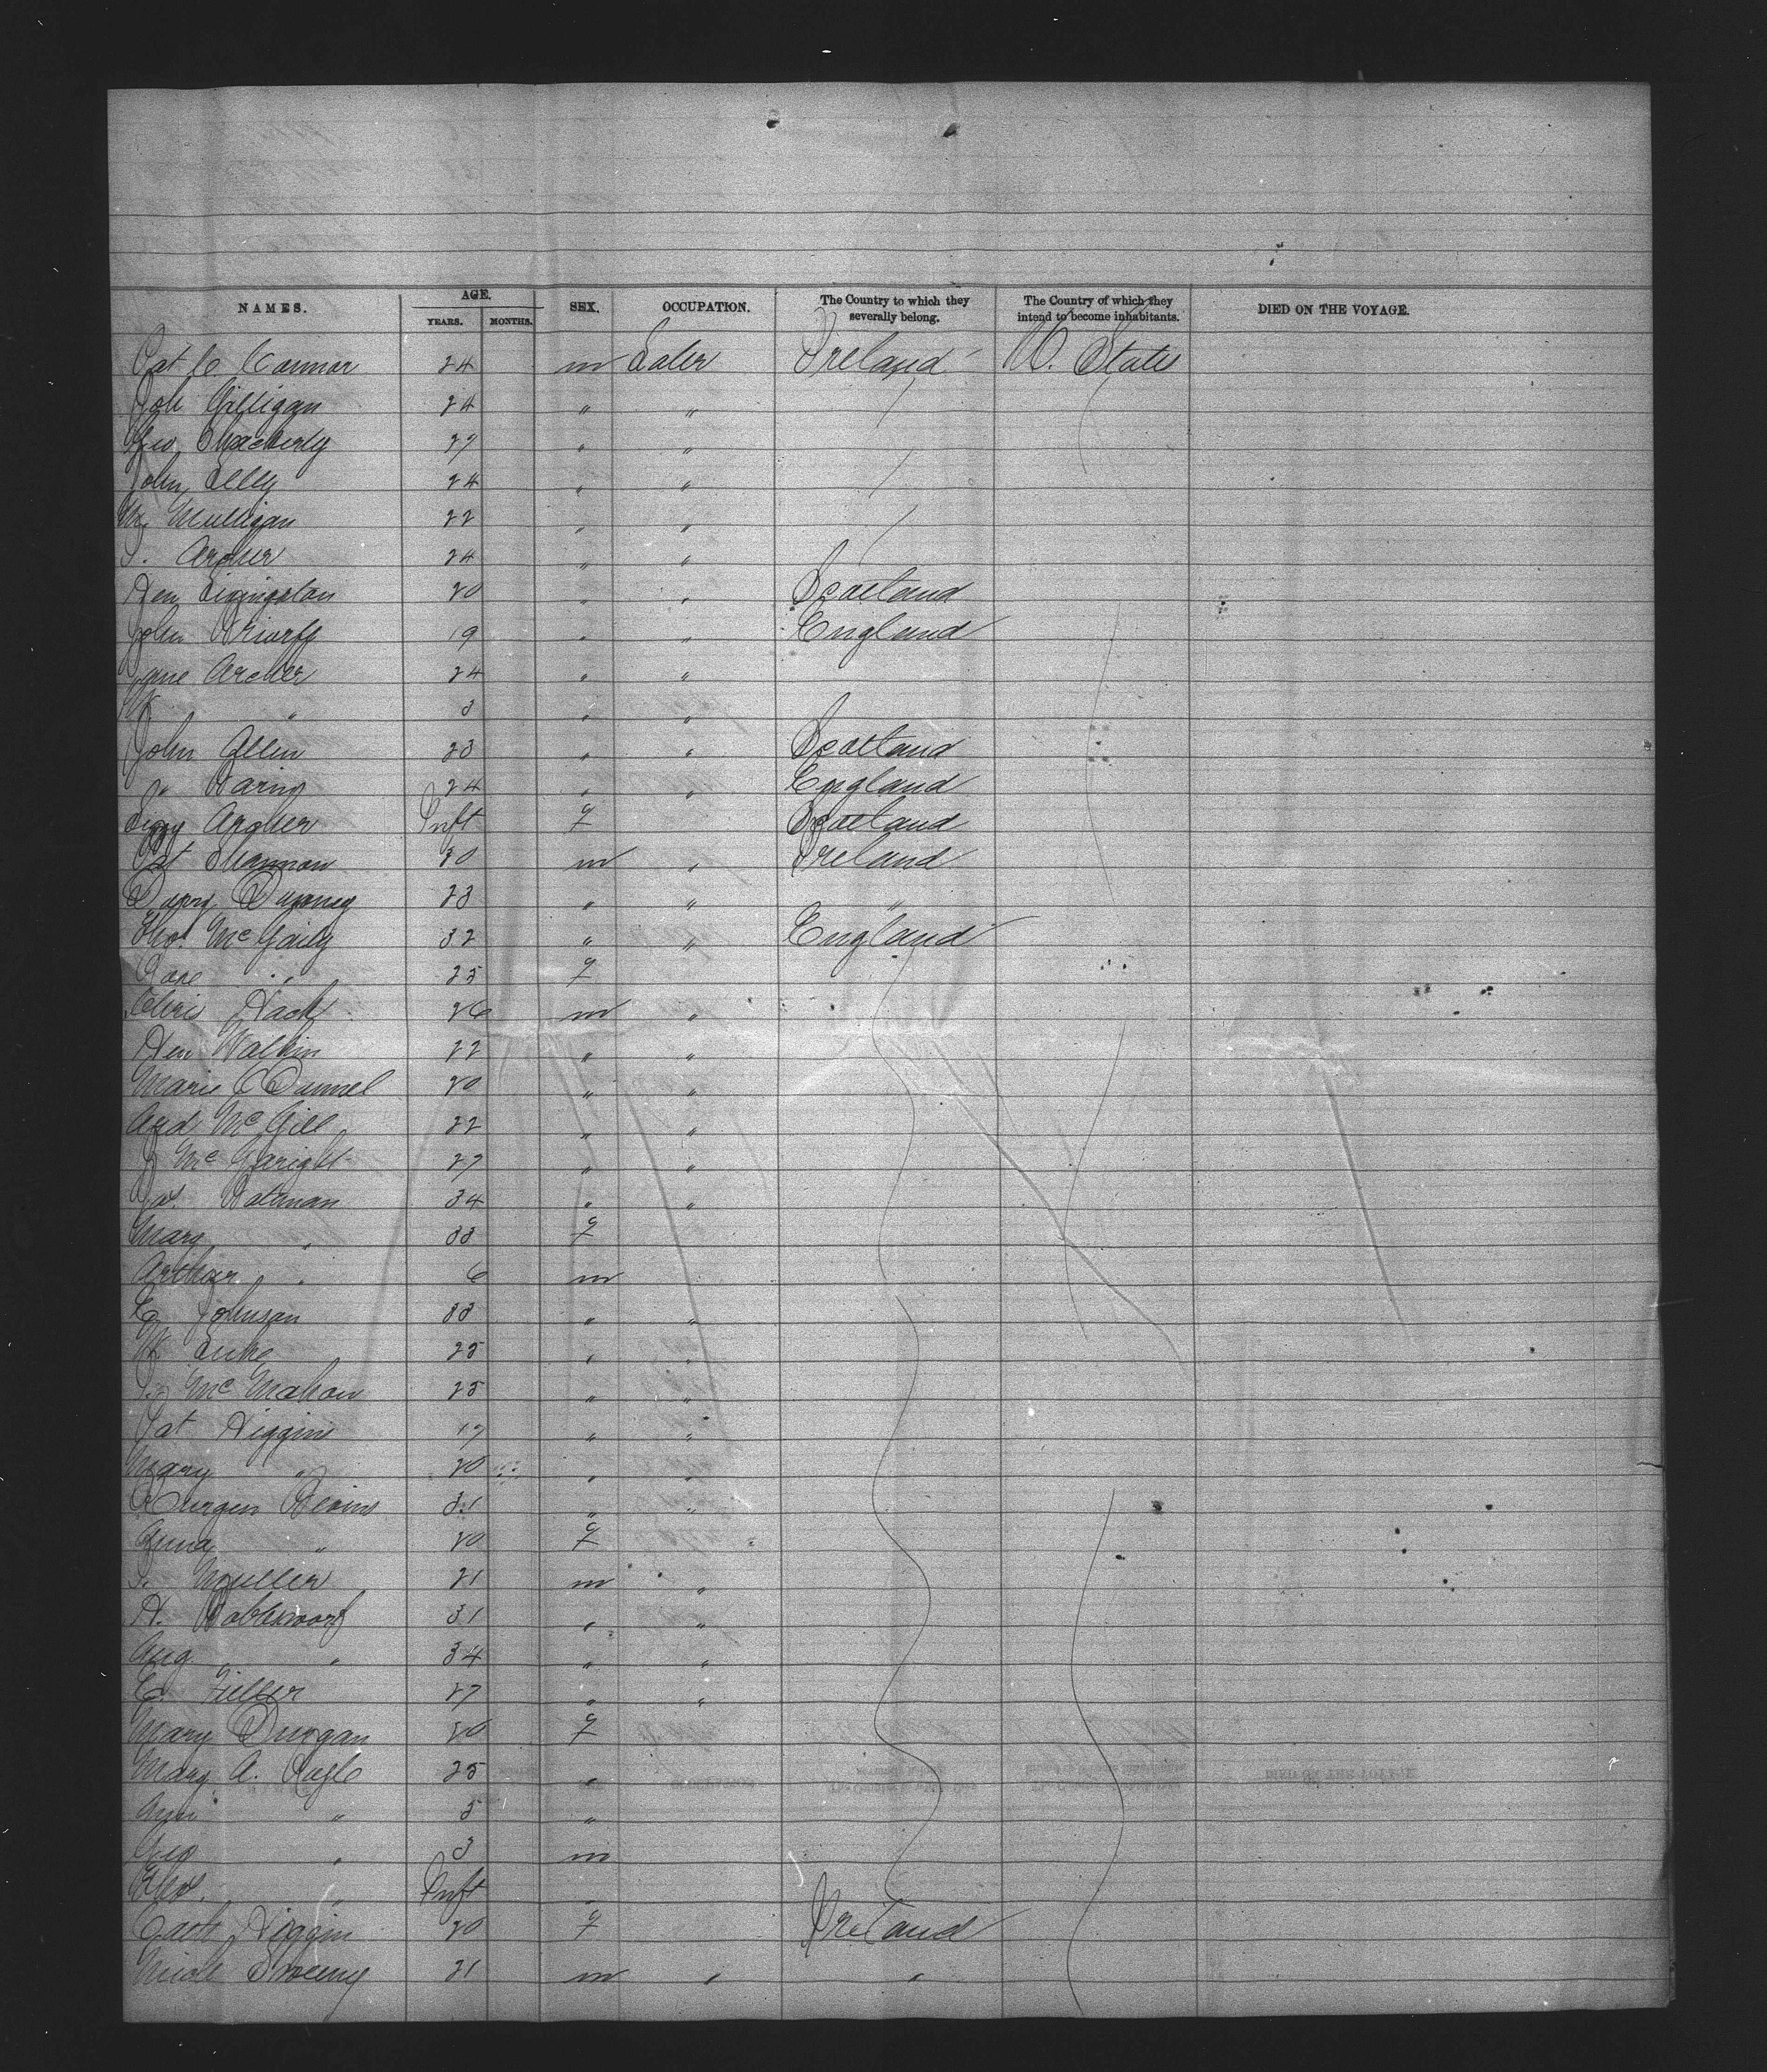 NAMES. AGE. YEARS. MONTHS. SEX. OCCUPATION. The Country to which they severally belong. The Country of which they intend to become inhabitants. DIED ON THE VOYAGE.
Pat O Connor 24 m Laber Ireland U. State
Joh Gilligan 24 " "
Geo 27 " "
John 24 " "
Mulligan 22 " "
Archer 24 " "
Hen Livingston 20 " " Scotland
John 19 " " England
Jane Archer 24 " "
W " 3 " "
John Allen 23 " " Scotland
" Waring 24 " " England
Lizzy Archer Inft f Scotland
Pat Shannon 20 m " Ireland
23 " " "
Tho. McGaily 32 " " England
Rose " 25 f
Chris Hack 26 m "
Hen Walkin 22 " "
Marie O Dunnel 20 " "
And McGill 22 " "
J McGaright 27 " "
Jas. Bateman 34 " "
Mary " 33 f
Arthur " 6 m
C. Johnson 33 " "
W Luke 25 " "
McMahon 25 " "
Pat Higgins 17 " "
Mary " 20 " "
Burgen Bevins 31 " "
Anna " 20 f "
Mueller 21 m "
H. 31 " "
Aug " 34 " "
C. Filler 27 " "
Mary Durgan 20 f
Mary A. 25 "
Ann " 5 "
Geo " 3 m
Thos. " Inft "
Cath Higgin 20 f Ireland
Mich Sweeny 21 m " "